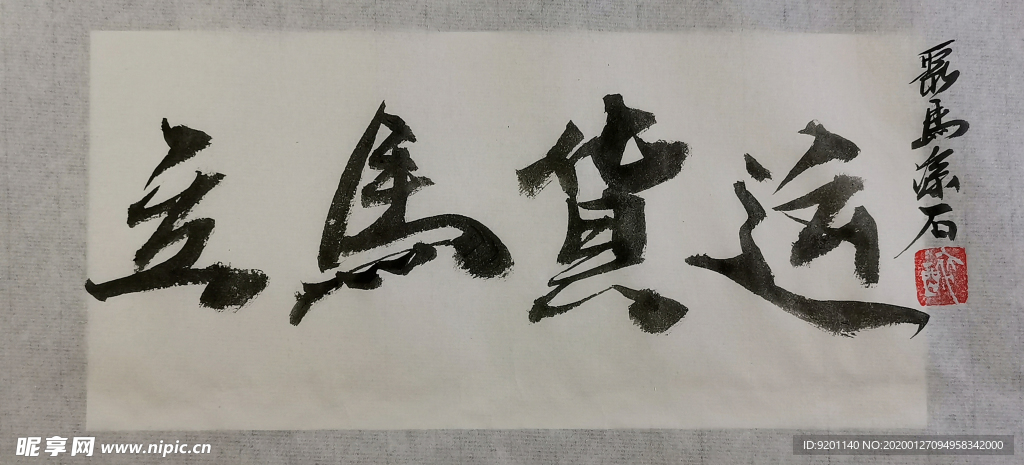 立馬貨运
馬涂石
昵享网 www.nipic.cn
ID:9201140 NO:20200127094958342000